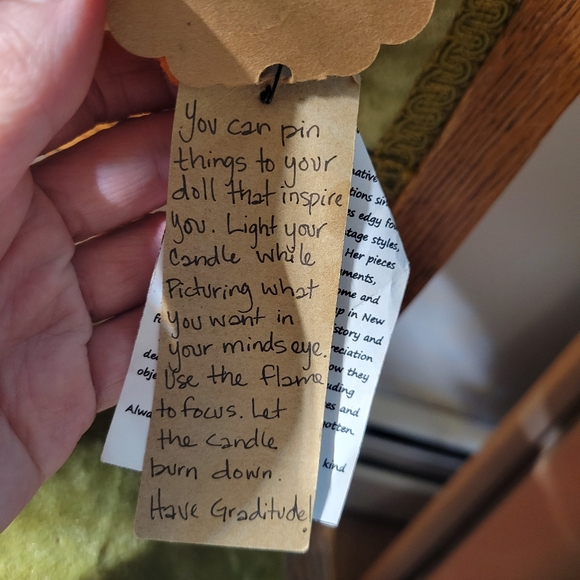 You can pin
things to your
doll that inspire
you. Light your
candle while
Picturing what
you want in
your minds eye.
Use the flame
to focus. Let
the candle
burn down.
Have Graditude!
edgy
tage styles,
Her pieces
ments,
ome and
up in New
story and
reciation
ow they
uding
es and
otten.
kind
de
obje
Alwa